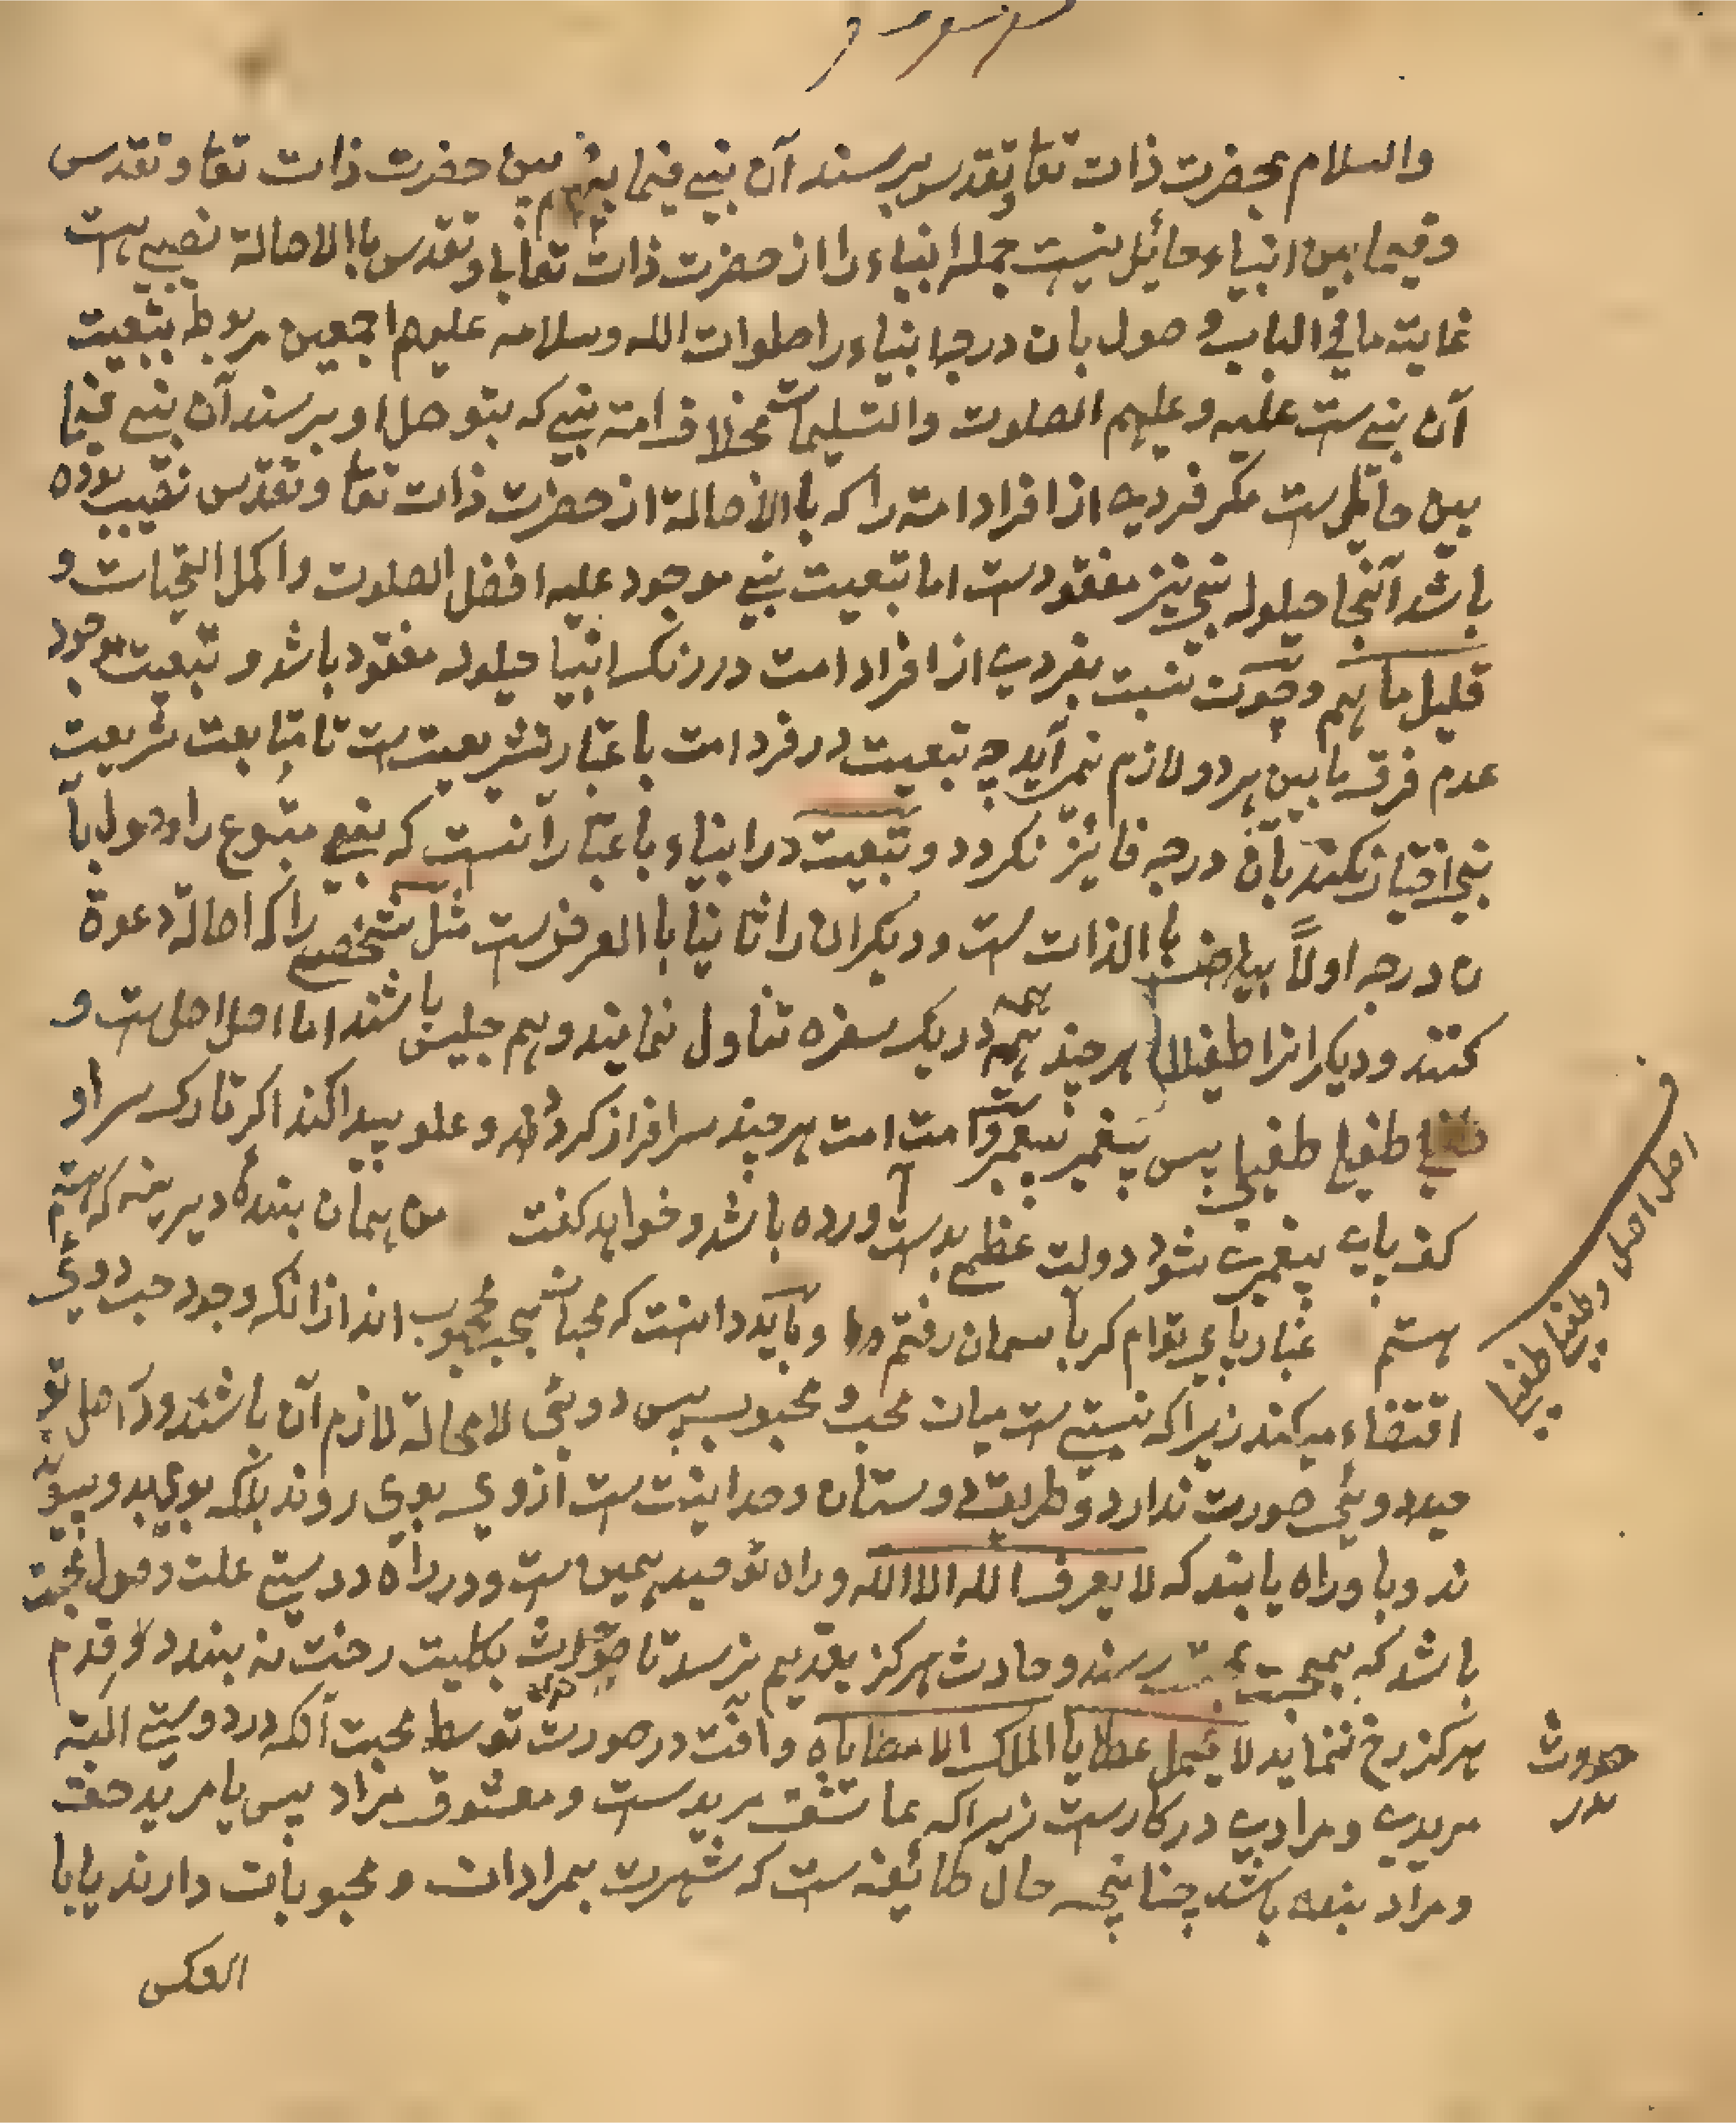 والسلام بحضرت ذات تعا وتقدس برسند آن نبي فيما بينهم بين حضرت ذات تعا و تقدس
وفيما بين انبياء حائل نيست جمله انبياء را از حضرت ذات تعالى و تقدس با الاصالة نصيبي است
غاية ما في الباب وصول بان درجه انبياء را صلوات الله وسلامه عليهم اجمعين مربوط بتبعيت
آن نبي ست عليه و عليهم الصلوت والتسليمات بخلاف امته نبي كه بتوصل او برسند آن نبي فيما
بين حائل ست مكر فردے از افراد امته را كه با الاصالة از حضرت ذات تعا و تقدس نصيب بوده
باشد آنجا حيلوله نبي نيز مفقودست اما تبعيت نبي موجود عليه افضل الصلوت واكمل التحيات و
قليل ما هم وچون نسبت بفردے از افراد امت در رنك انبيا حيلوله مفقود باشد و تبعيت موجود
عدم فرق ما بين هر دو لازم نمى آيد چه تبعيت در فرد امت باعتبار تشريعت ست تا متابعت شريعت
نبي اختيار نكند بآن درجه فائز نكردد و تبعيت در انبياء باعتبار آنست كه نبي متبوع را وصول بآ
ن درجه اولاً بالذات ست و ديكران را ثانيا با العرض ست مثل شخصے را كه اصالة دعوة
كنند و ديكرانرا طفيلا هر چند همه در يك سفره تناول نمايند و هم جليس باشند اما اصل اصل ست و
طفيلي طفيلي پس پيغمبر پيغمبر ست و امت امت هر چند سرافراز كردند و علو پيدا كند اكر تارك سر او
كف پاے پيغمبرے شود دولت عظيم بدست آورده باشد و خواهد كفت من همان بنده ديرينه كه هستم
هستم غبار پاے توام كر بآسمان رفتم و بايد دانست كه محبان بحب محبوب اند از انكه وجود حب دوئي
اقتضاء ميكند زيراكه نسبتے ست ميان محب و محبوب پس دوئي لا محالة لازم آن باشد و در اصل تو
حيد دوئي صورت ندارد و طريق دوستان وحدانيت ست از وى بوى روند بلكه بوى بد و پيو
ند و با وراه يابند كه لا يعرف الله الا الله و راه توحيد همين ست و در راه دوستى علت وصول محبت
باشد كه بمحبت برسند و حادث هركز بقديم نرسد تا حدوث بكليت رخت نه بندد و قدم
هركز رخ ننمايد لا يحمل عطايا الملك الا مطاياه و آفت در صورت توسط محبت آنكه در دوستى البته
مريدے و مرادے دركارست زيراكه عاشق مريدست و معشوق مراد پس يا مريد حق
و مراد بنده باشد چنانچه حال طائفه ست كه شهرت بمرادان و محبوبان دارند يا با
العكس
اصل اصل و طفيلي طفيلي
حدوث